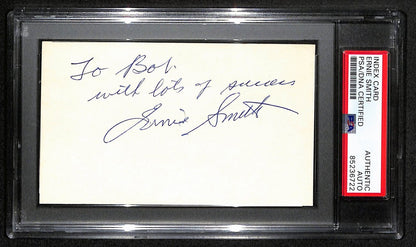 To Bob.
with lots of success
Ernie Smith
INDEX CARD
ERNIE SMITH
PSA/DNA CERTIFIED
PSA
AUTHENTIC
AUTO
85236722